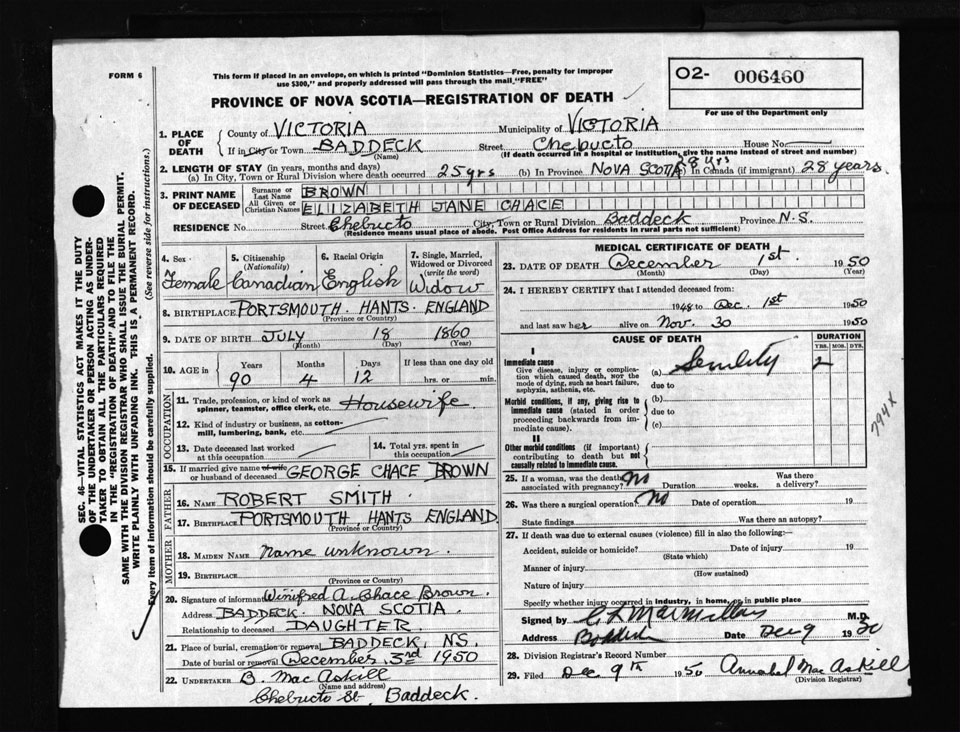 FORM 6
This form if placed in an envelope, on which is printed "Dominion Statistics—Free, penalty for improper
use $300," and properly addressed will pass through the mail "FREE"
O2- 006460
For use of the Department only
PROVINCE OF NOVA SCOTIA—REGISTRATION OF DEATH
SEC. 46—VITAL STATISTICS ACT MAKES IT THE DUTY
OF THE UNDERTAKER OR PERSON ACTING AS UNDER-
TAKER TO OBTAIN ALL THE PARTICULARS REQUIRED
IN THE "REGISTRATION OF DEATH" AND TO FILE THE
SAME WITH THE DIVISION REGISTRAR WHO SHALL ISSUE THE BURIAL PERMIT.
WRITE PLAINLY WITH UNFADING INK. THIS IS A PERMANENT RECORD.
Every item of information should be carefully supplied. (See reverse side for instructions.)
1. PLACE OF DEATH County of VICTORIA Municipality of VICTORIA
If in City or Town BADDECK (Name) Street Chebucto House No.
(If death occurred in a hospital or institution, give the name instead of street and number)
2. LENGTH OF STAY (in years, months and days)
(a) In City, Town or Rural Division where death occurred 25 yrs (b) In Province NOVA SCOTIA 28 yrs (c) In Canada (if immigrant) 28 years.
3. PRINT NAME OF DECEASED Surname or Last Name BROWN
All Given or Christian Names ELIZABETH JANE CHACE
RESIDENCE No. Street Chebucto City, Town or Rural Division Baddeck Province N.S.
(Residence means usual place of abode. Post Office Address for residents in rural parts not sufficient)
4. Sex Female
5. Citizenship (Nationality) Canadian
6. Racial Origin English
7. Single, Married, Widowed or Divorced (write the word) Widow
8. BIRTHPLACE PORTSMOUTH. HANTS. ENGLAND
(Province or Country)
9. DATE OF BIRTH JULY (Month) 18 (Day) 1860 (Year)
10. AGE in Years 90 Months 4 Days 12 If less than one day old hrs. or min.
OCCUPATION
11. Trade, profession, or kind of work as spinner, teamster, office clerk, etc. Housewife.
12. Kind of industry or business, as cotton-mill, lumbering, bank, etc.
13. Date deceased last worked at this occupation
14. Total yrs. spent in this occupation
15. If married give name of wife or husband of deceased GEORGE CHACE BROWN
FATHER
16. NAME ROBERT SMITH.
17. BIRTHPLACE PORTSMOUTH. HANTS ENGLAND
(Province or Country)
MOTHER
18. MAIDEN NAME Name unknown.
19. BIRTHPLACE
(Province or Country)
20. Signature of informant Winifred A. Chace Brown.
Address BADDECK. NOVA SCOTIA.
Relationship to deceased DAUGHTER
21. Place of burial, cremation or removal BADDECK, NS.
Date of burial or removal December 3rd 1950
22. UNDERTAKER B. MacAskill
(Name and address)
Chebucto St. Baddeck.
MEDICAL CERTIFICATE OF DEATH
23. DATE OF DEATH December 1st 1950
(Month) (Day) (Year)
24. I HEREBY CERTIFY that I attended deceased from:
1948 to Dec. 1st 1950
and last saw her alive on Nov. 30 1950
CAUSE OF DEATH
DURATION
YRS. MOS. DYS.
I
Immediate cause
Give disease, injury or complication which caused death, NOT the mode of dying, such as heart failure, asphyxia, asthenia, etc.
(a) Senility 2
due to
Morbid conditions, if any, giving rise to immediate cause (stated in order proceeding backwards from immediate cause).
(b)
due to
(c)
II
Other morbid conditions (if important) contributing to death but not causally related to immediate cause.
794X
25. If a woman, was the death associated with pregnancy? No Duration weeks. Was there a delivery?
26. Was there a surgical operation? No Date of operation 19
State findings Was there an autopsy?
27. If death was due to external causes (violence) fill in also the following:—
Accident, suicide or homicide? Date of injury 19
(State which)
Manner of injury
(How sustained)
Nature of injury
Specify whether injury occurred in industry, in home, or in public place
Signed by C L MacMillan M.D.
Address Baddeck Date Dec 9 1950
28. Division Registrar's Record Number
29. Filed Dec 9th 1950 Annabel MacAskill
(Division Registrar)